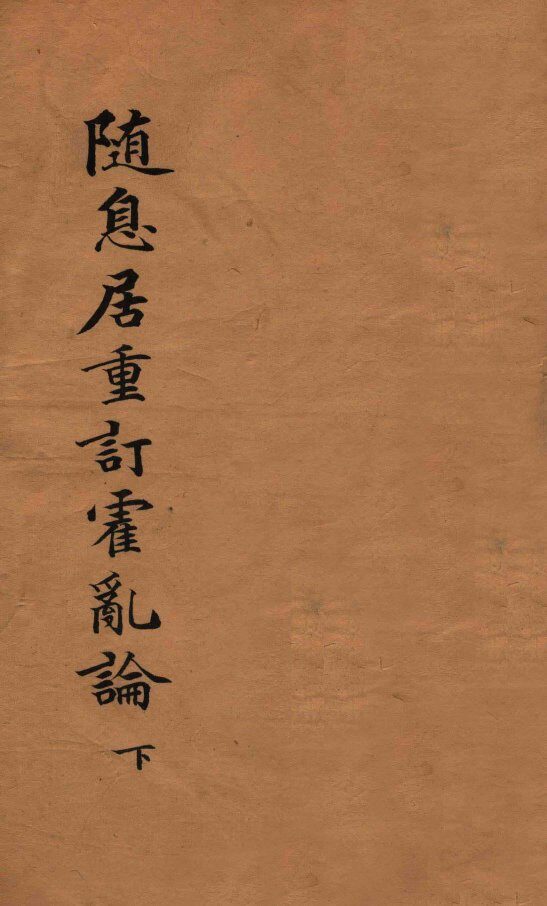 随息居重訂霍亂論 下